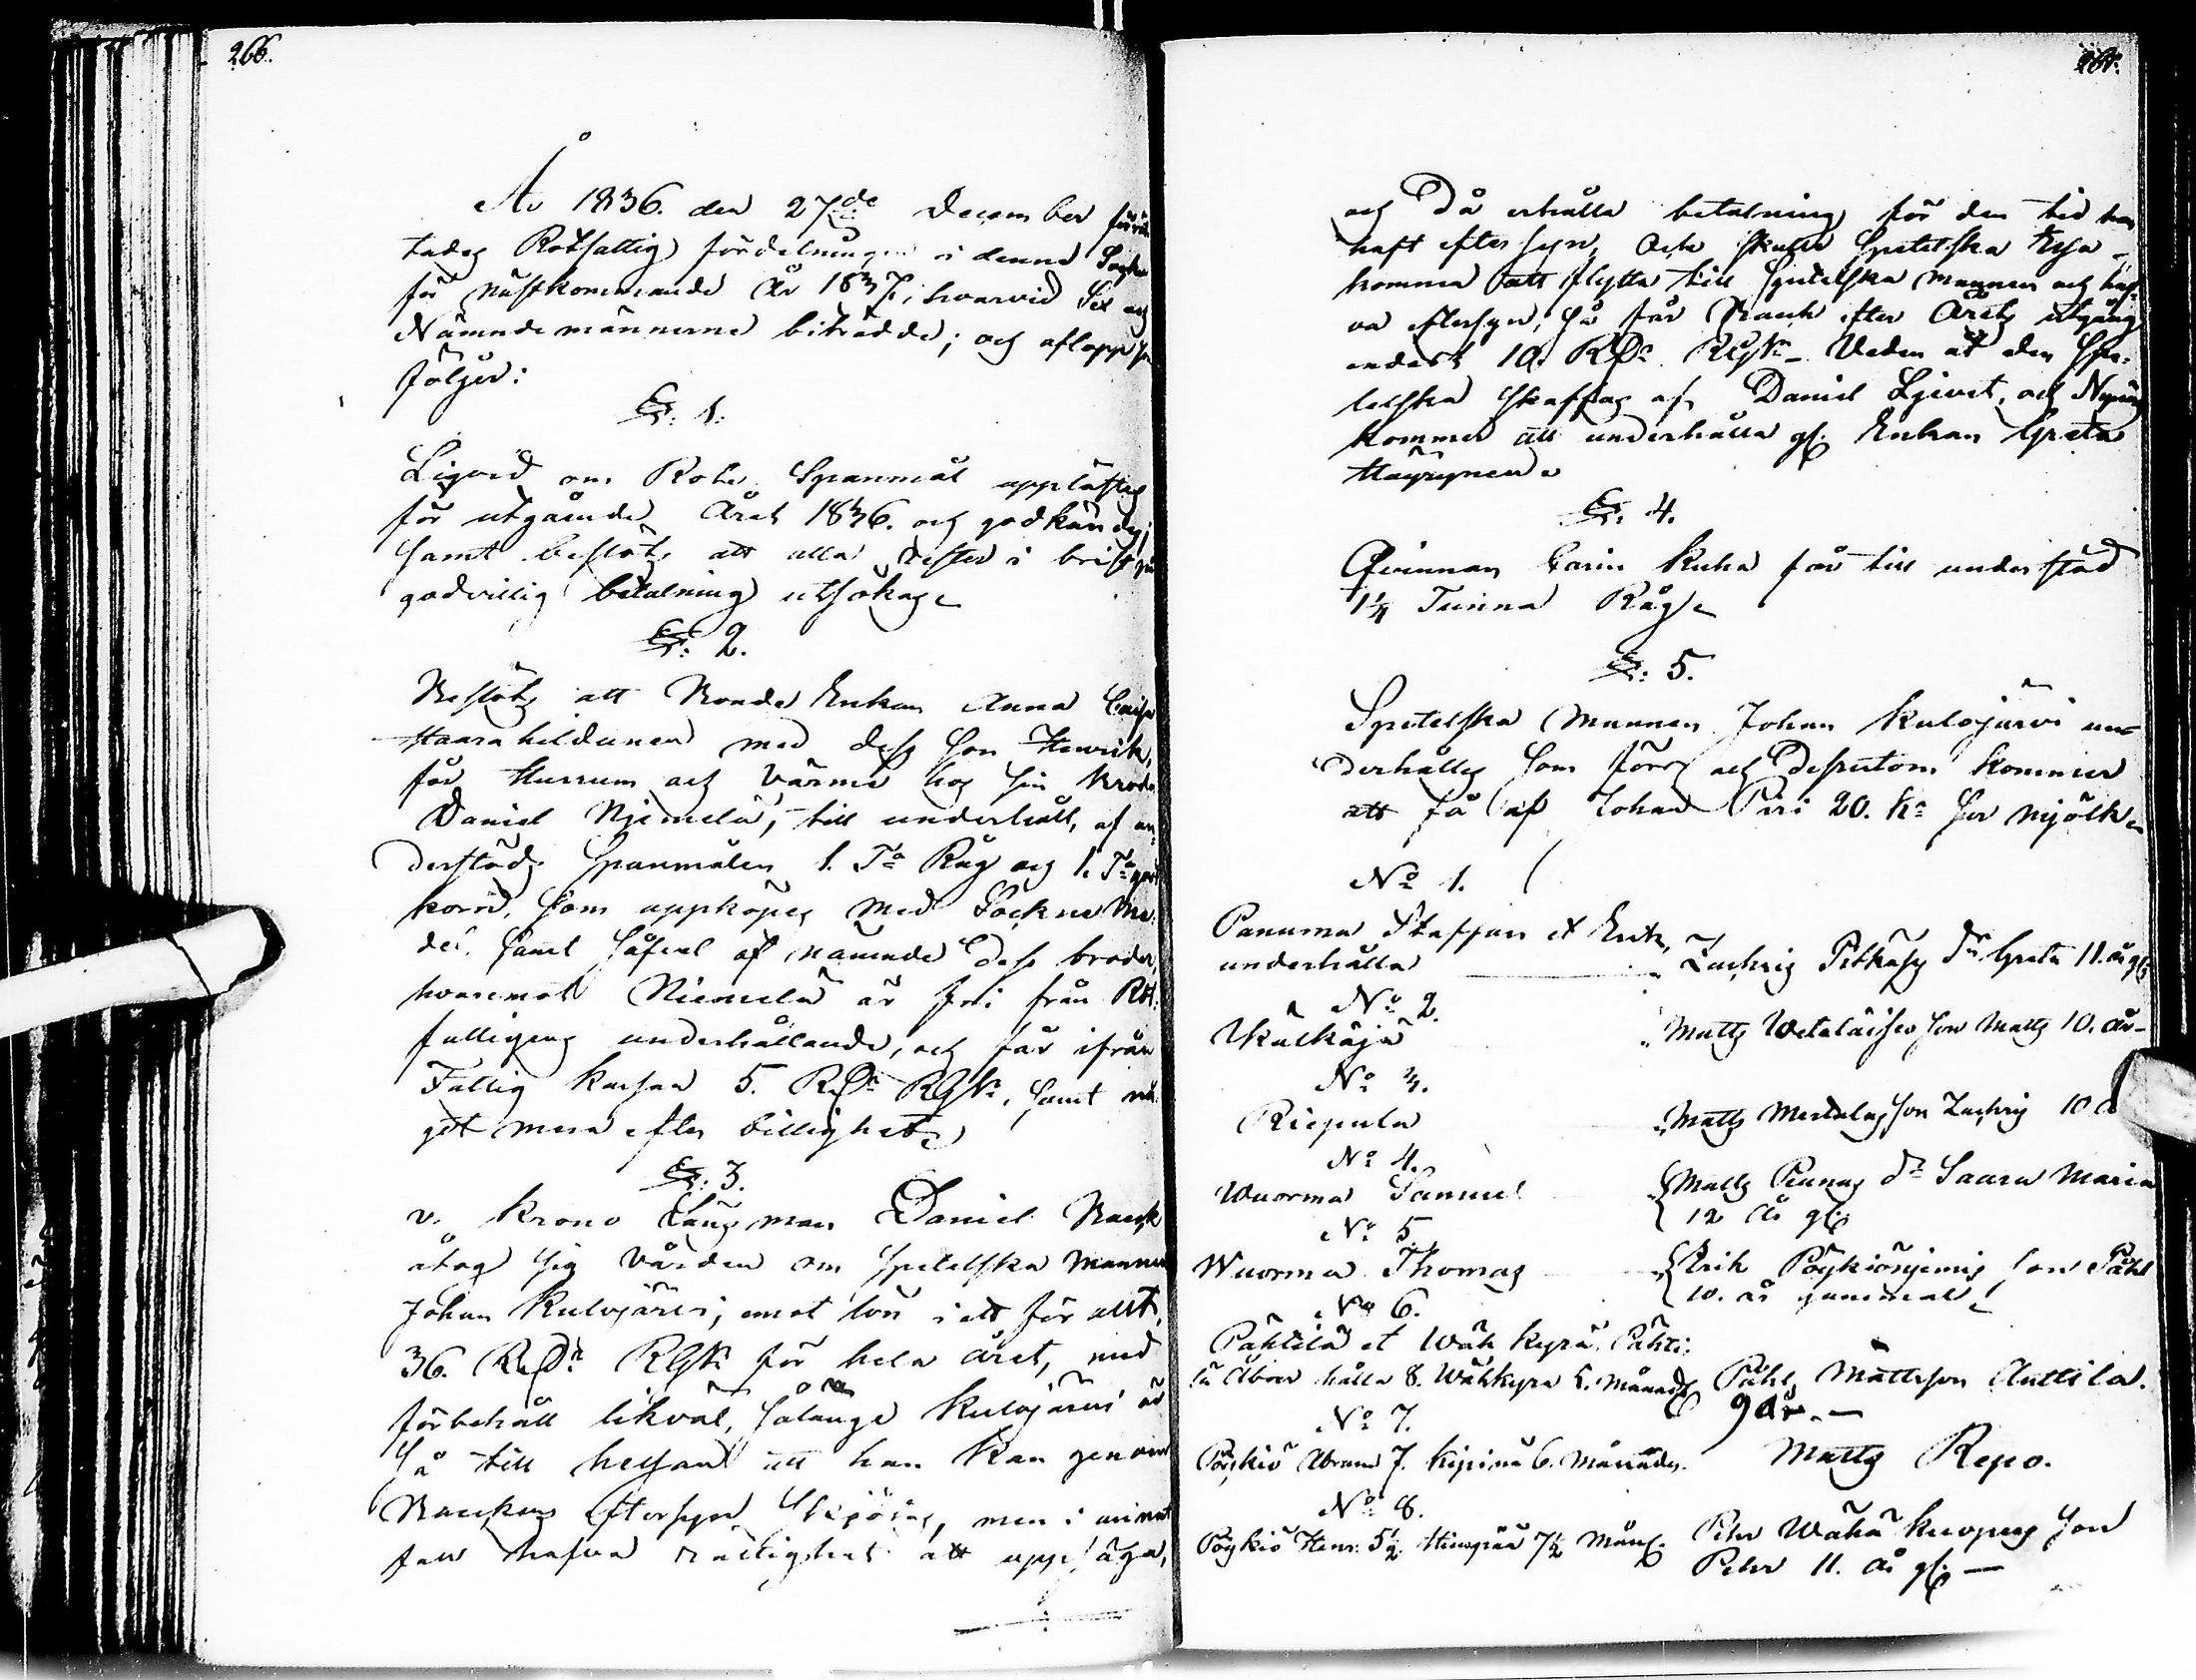 266.
År 1836. den 27de December förrät
tades Rotfattig fördelningen i denna Sockn
för nästkommande År 1837, hvarvid Sex och
Nämndemännerne biträdde; och aflopp som
följer:
§: 1.
Liqvid om Rote Spanmål upplästes
för utgående Året 1836. och godkändes;
samt beslöts att alla rester i brist på
godvillig betalning utsökas
§: 2.
Beslöts att Bonde Enkan Anna Caisa
Haarahiltunen med dess son Henrik,
får Husrum och Värme hos sin broder
Daniel Niemelä, till underhåll, af un
derstöds Spanmålen 1. Ta Råg och 1. Ta god
korn, som uppköpes med Sockne Me
del. samt såfvel af nämnde Dess broder,
hvaremot Niemelä är fri från Rot
fattigens underhållande, och får ifrån
Fattig Kassan 5. RDr RGS, samt nå
got mera efter billighet
§: 3.
v. Krono Länsman Daniel Nauk
åtog sig vården om Spetelska mannen
Johan Kulojärvi, emot lön i ett för allt,
36. RDr RGS för hela året, med
förbehåll likväl, sålänge Kulojärvi är
så till helsan att han kan genom
Eftersyn skjötas, men i annat
fall hafva rättighet att uppsäga,
267.
och Då erhålla betalning för den tid han
haft eftersyn, Och skulle Spetelska
komma att flytta till Spetelska mannen och haf
va eftersyn, så får Nauk efter Årets utgång
endast 10. RDr RGS Veden åt den Spe
telska skaffas af Daniel Ljivet, och
kommer att underhålla gl. Enkan Greta
Häyrynen
§: 4.
Qvinnan Carin Kuha får till understöd
1¼ Tunna Råg
§: 5.
Spetelska Mannen Johan Kulojärvi un
derhålles som förr och Dessutom kommer
att få af Johan Piri 20. Kr för mjölk
No 1.
Panuma Staffan et Erik,
underhålla Zachris Pitkäs dr. Greta 11. år gl
No 2.
Kälkäjä Matts Weteläises son Matts 10. år
No 3.
Riepula Matts Mertalas son Zachris 10 å
No 4.
Wuorma Samuel Matts Pennas dr Saara Maria
12 år gl:
No 5.
Wuorma Thomas Erik Pöykiöniemis son Påhl
10. år gammal
No 6.
Pähtilä et Wäh kyrä, Pähti:
lä Åboer hålla 8. Wähkyrä 5. månader Påhl Mattsson Anttila.
9 år. —
No 7.
Pöykiö Abram 7. Kipinä 6. månader. Matts Repo.
No 8.
Pöykiö Henr. 5½ 7½ mån. Pehr Wähä kuopus son
Pehr 11. år gl: —